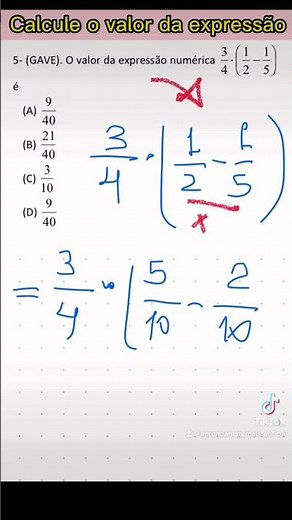 Calcule o valor da expressão
5- (GAVE). O valor da expressão numérica 3/4 · (1/2 − 1/5)
é
(A) 9/40
(B) 21/40
(C) 3/10
(D) 9/40
3/4 · (1/2 − 1/5)
x
= 3/4 · (5/10 − 2/10
TikTok